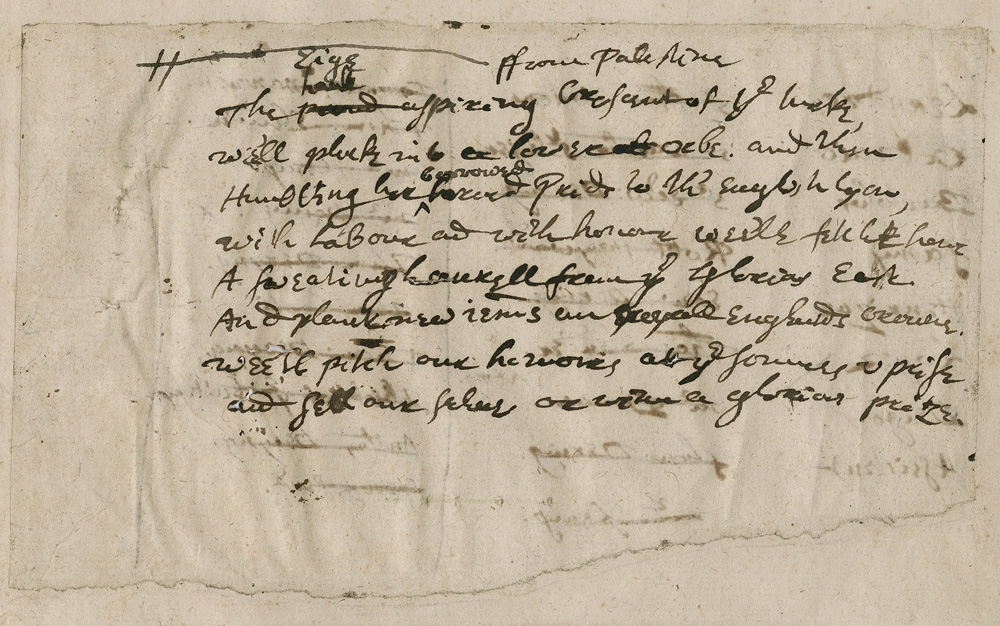 ffrom Palestine
The aspiring Cresent of ye turke,
wee'll pluck into a lower orbe. and then
Humbling her borrowed Pride to th' English lyon,
with labour and with honour wee'le fetch there
A sweating laurell from ye glorius East
And plant new iems on royall Englands crowne.
wee'll pitch our honours att ye sonnes uprise
and sell our selves or winn a glorius prize.